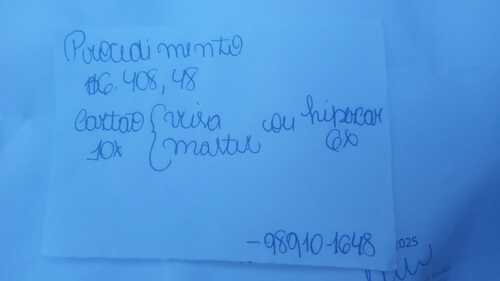 Procedimento
$6.408,48
cartão { visa ou hipercar
10x { master 6x
-98910-1648
2025